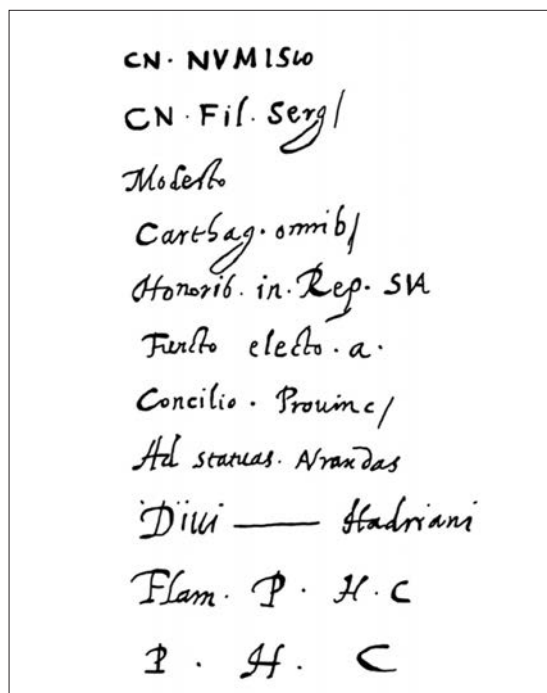 CN · NVMISIO
CN · Fil. Serg/
Modesto
Carthag · omnib/
Honorib. in. Rep. SVA
Functo electo. a.
Concilio . Provinc/
Ad statuas. Nrandas
Divi — Hadriani
Flam. P. H. C
P. H. C